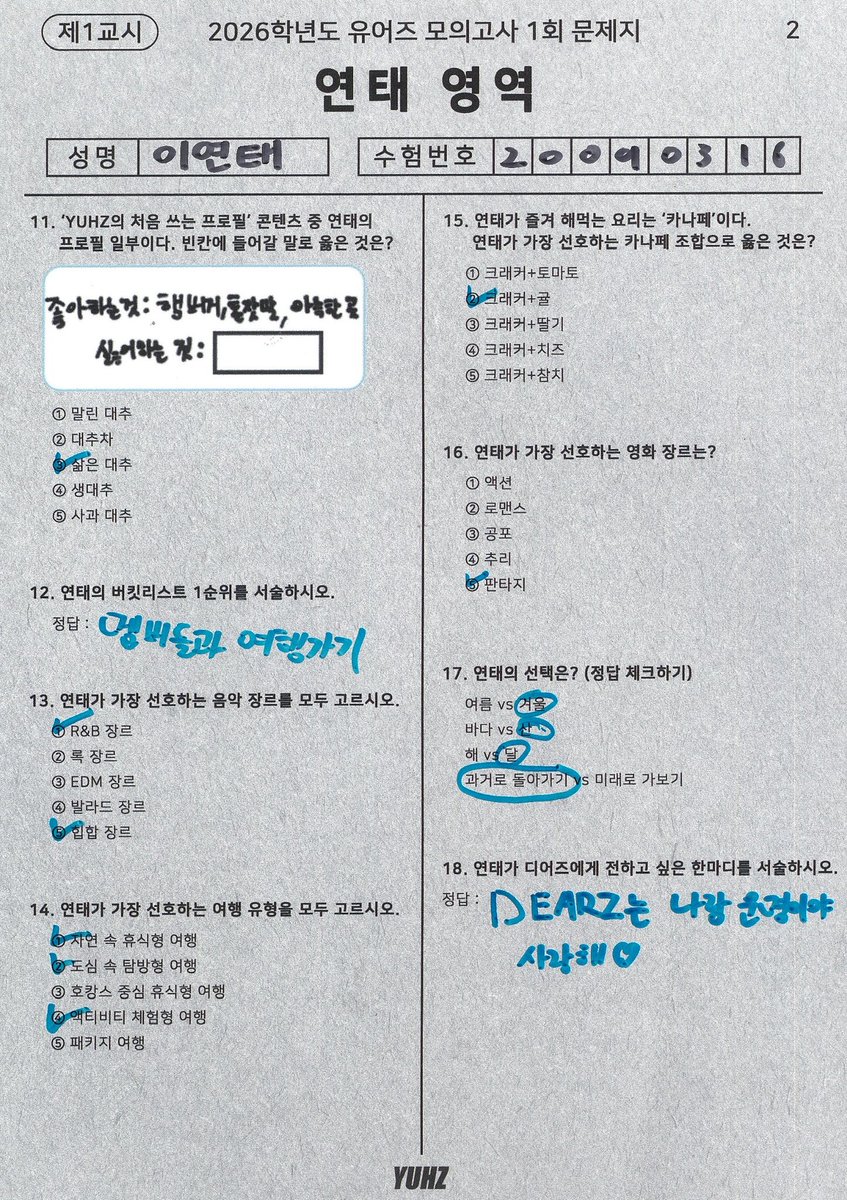 제1교시
2026학년도 유어즈 모의고사 1회 문제지
2
연태 영역
성명 이연태
수험번호 20090316
11. ‘YUHZ의 처음 쓰는 프로필’ 콘텐츠 중 연태의
프로필 일부이다. 빈칸에 들어갈 말로 옳은 것은?
좋아하는것: 햄버거, 돌잔말, 아늑한 곳
싫어하는 것:
① 말린 대추
② 대추차
③ 삶은 대추
④ 생대추
⑤ 사과 대추
12. 연태의 버킷리스트 1순위를 서술하시오.
정답 : 멤버들과 여행가기
13. 연태가 가장 선호하는 음악 장르를 모두 고르시오.
① R&B 장르
② 록 장르
③ EDM 장르
④ 발라드 장르
⑤ 힙합 장르
14. 연태가 가장 선호하는 여행 유형을 모두 고르시오.
① 자연 속 휴식형 여행
② 도심 속 탐방형 여행
③ 호캉스 중심 휴식형 여행
④ 액티비티 체험형 여행
⑤ 패키지 여행
15. 연태가 즐겨 해먹는 요리는 ‘카나페’이다.
연태가 가장 선호하는 카나페 조합으로 옳은 것은?
① 크래커+토마토
② 크래커+귤
③ 크래커+딸기
④ 크래커+치즈
⑤ 크래커+참치
16. 연태가 가장 선호하는 영화 장르는?
① 액션
② 로맨스
③ 공포
④ 추리
⑤ 판타지
17. 연태의 선택은? (정답 체크하기)
여름 vs 겨울
바다 vs 산
해 vs 달
과거로 돌아가기 vs 미래로 가보기
18. 연태가 디어즈에게 전하고 싶은 한마디를 서술하시오.
정답 : DEARZ는 나랑 운명이야
사랑해♡
YUHZ